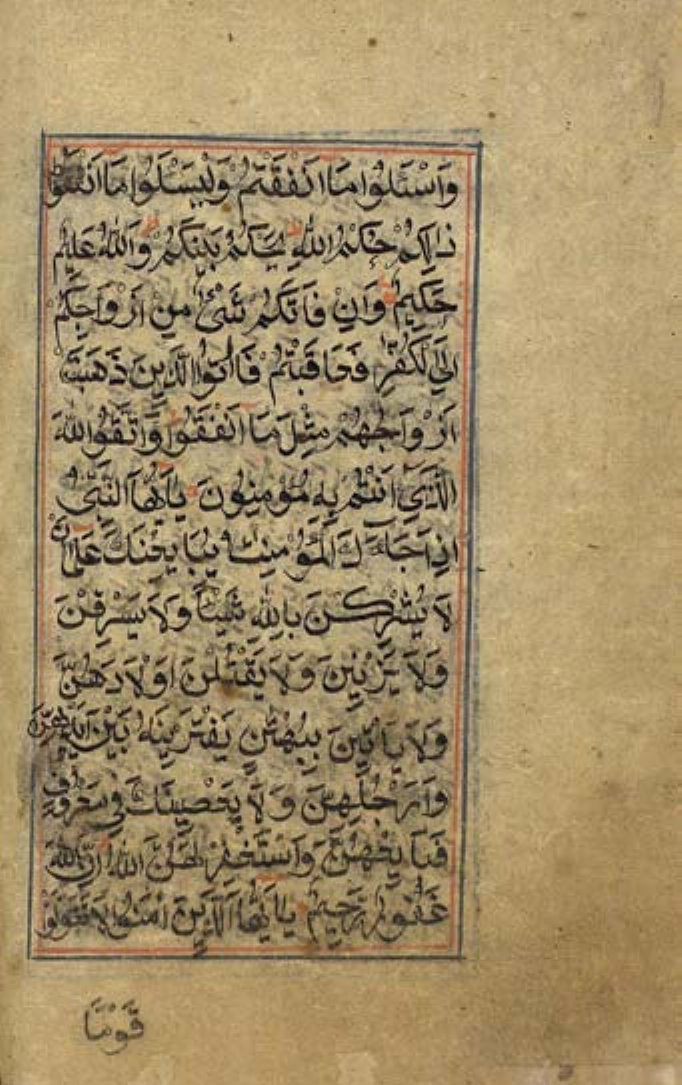 وَاسْئَلُوا مَا اَنْفَقْتُمْ وَلْيَسْئَلُوا مَا اَنْفَقُوا
ذٰلِكُمْ حُكْمُ اللّٰهِ يَحْكُمُ بَيْنَكُمْ وَاللّٰهُ عَلِيْمٌ
حَكِيْمٌ وَاِنْ فَاتَكُمْ شَيْئٌ مِنْ اَزْوَاجِكُمْ
اِلَى الْكُفَّرِ فَعَاقَبْتُمْ فَاٰتُوا الَّذِيْنَ ذَهَبَتْ
اَزْوَاجُهُمْ مِثْلَ مَا اَنْفَقُوا وَاتَّقُوا اللّٰهَ
الَّذِيْ اَنْتُمْ بِهٖ مُؤْمِنُوْنَ يَااَيُّهَا النَّبِيُّ
اِذَا جَاءَكَ الْمُؤْمِنٰتُ يُبَايِعْنَكَ عَلٰى اَنْ
لَا يُشْرِكْنَ بِاللّٰهِ شَيْئًا وَلَا يَسْرِقْنَ
وَلَا يَزْنِيْنَ وَلَا يَقْتُلْنَ اَوْلَادَهُنَّ
وَلَا يَاْتِيْنَ بِبُهْتٰنٍ يَفْتَرِيْنَهُ بَيْنَ اَيْدِيْهِنَّ
وَاَرْجُلِهِنَّ وَلَا يَعْصِيْنَكَ فِيْ مَعْرُوْفٍ
فَبَايِعْهُنَّ وَاسْتَغْفِرْ لَهُنَّ اللّٰهَ اِنَّ اللّٰهَ
غَفُوْرٌ رَحِيْمٌ يَااَيُّهَا الَّذِيْنَ اٰمَنُوا لَا تَتَوَلَّوْا
قَوْمًا